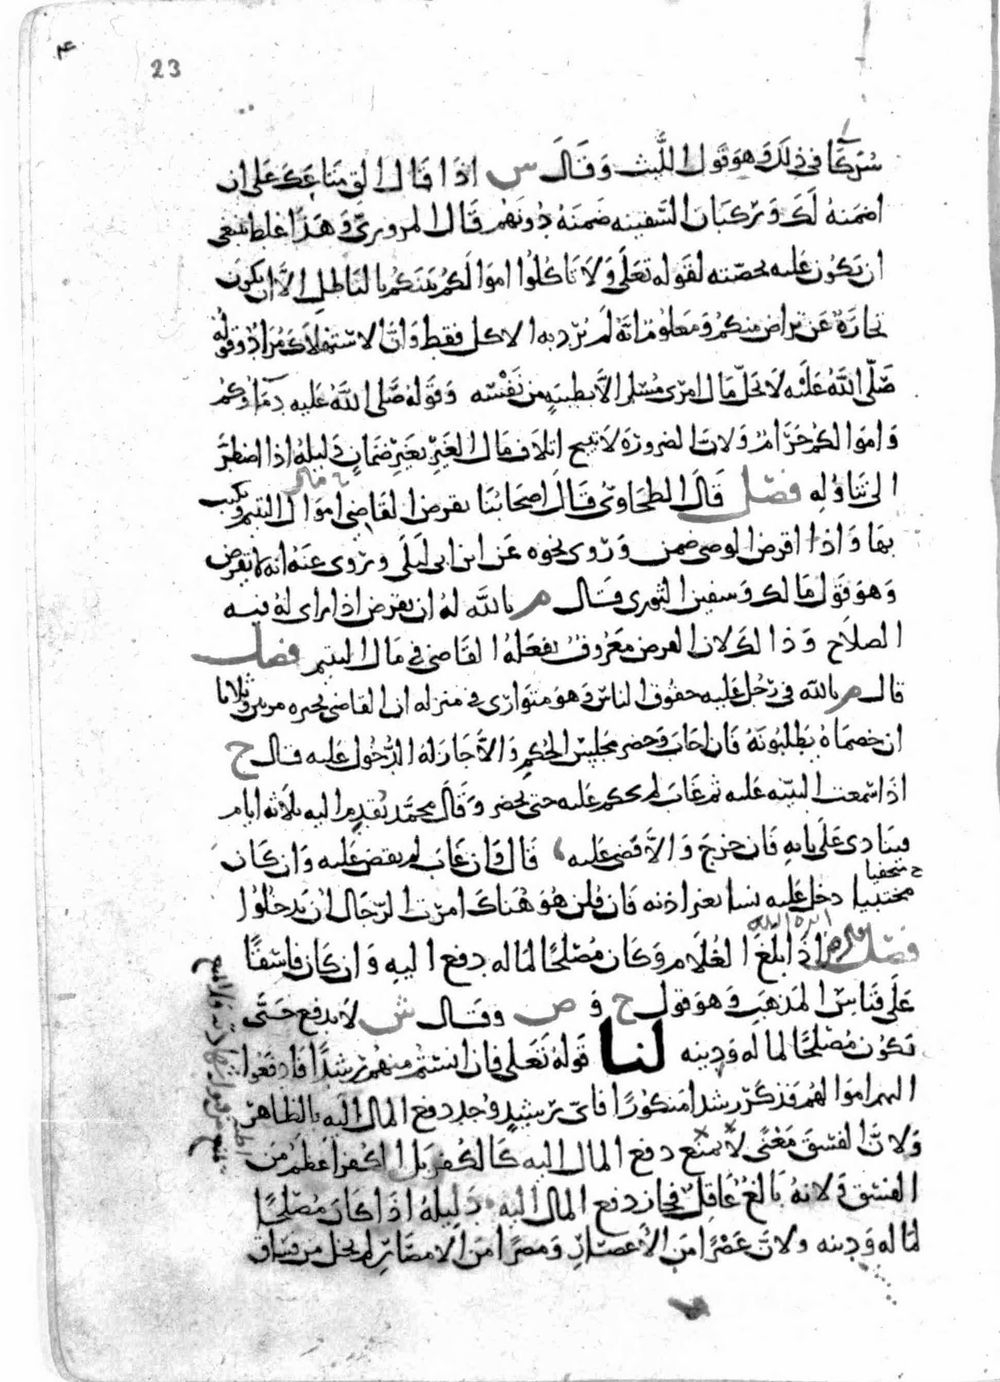 23
شركا في ذلك وهو قول الليث وقال س اذا قال الق متاعك على ان
اضمنه لك وركبان السفينه ضمنه دونهم قال المروري وهذا غلط ينبغي
ان يكون عليه بحصته لقوله تعلى ولا تاكلوا اموالكم بينكم بالباطل الا ان تكون
تجارة عن تراض منكم ومعلوم انه لم يرد به الاكل فقط وان الاستهلاك مراد وقوله
صلى الله عليه لا يحل مال امرئ مسلم الا بطيبة من نفسه وقوله صلى الله عليه دماوكم
واموالكم حرام ولان الضرورة لا تبيح اتلاف مال الغير بغير ضمان دليله اذا اضطر
الى تناوله فصل قال الطحاوي قال اصحابنا يقرض القاضي اموال اليتيم ويكتب
بها واذا اقرض الوصي ضمن وروي نحوه عن ابن ابي ليلى وروي عنه انه لا يقرض
وهو قول مالك وسفين الثوري قال م بالله له ان يقرض اذا راى له فيه
الصلاح وذالك لان القرض معروف يفعله القاضي في مال اليتيم فصل
قال م بالله في رجل عليه حقوق الناس وهو متوارى في منزله ان القاضي يخبره مرتين وثلاثا
ان خصماه يطلبونه فان اجاب وحضر مجلس الحكم والا جاز له الدخول عليه قال ح
اذا سمعت البينه عليه ثم غاب لم يحكم عليه حتى يحضر وقال محمد يقدم اليه ثلاثه ايام
فينادى على بابه فان خرج والا قضى عليه قال وان غاب لم يقض عليه وان كان
مختبيا دخل عليه نسا بغير اذنه فان قلن هو هناك امرت الرجال ان يدخلوا
فصل اذا بلغ الغلام وكان مصلحا لماله دفع اليه وان كان فاسقا
على قياس المذهب وهو قول ح و ص وقال ش لا يدفع حتى
يكون مصلحا لماله ودينه لنا قوله تعلى فان انستم منهم رشدا فادفعوا
اليهم اموالهم فذكر رشدا منكورا فاي رشيد وجد دفع المال اليه بالظاهر
ولان الفسق معنى لا يمنع دفع المال اليه كالكفر بل الكفر اعظم من
الفسق ولانه بالغ عاقل فجاز دفع المال اليه دليله اذا كان مصلحا
لماله ودينه ولان عصرا من الاعصار ومصرا من الامصار لم يخل من فساق